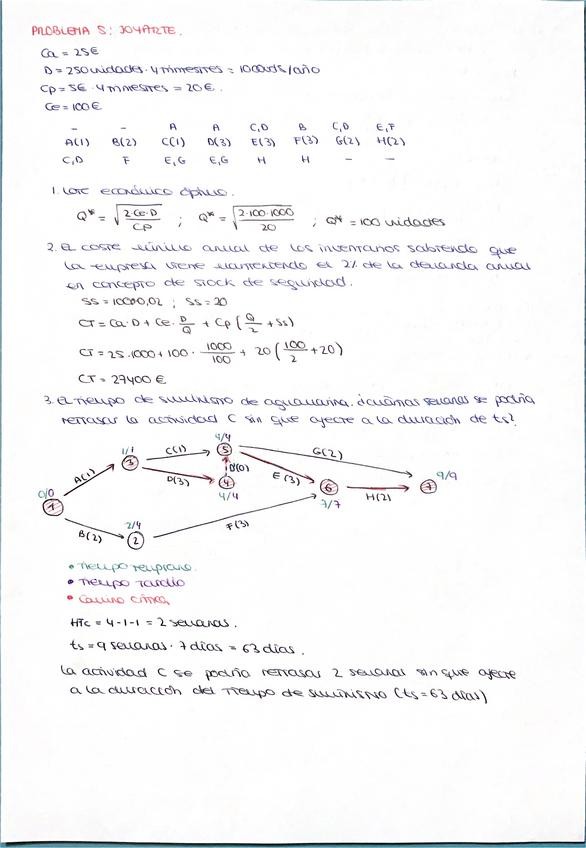 PROBLEMA 5: JOYARTE.
Ca = 25€
D = 250 unidades · 4 trimestres = 1000 uds/año
Cp = 5€ · 4 trimestres = 20€.
Ce = 100€
- - A A C,D B C,D E,F
A(1) B(2) C(1) D(3) E(3) F(3) G(2) H(2)
C,D F E,G E,G H H - -
1. Lote económico óptimo.
Q* = √(2·Ce·D / Cp) ; Q* = √(2·100·1000 / 20) ; Q* = 100 unidades
2. El coste mínimo anual de los inventarios sabiendo que
la empresa viene manteniendo el 2% de la demanda anual
en concepto de stock de seguridad.
SS = 1000·0,02 ; SS = 20
CT = Ca·D + Ce · D/Q + Cp (Q/2 + Ss)
CT = 25·1000 + 100 · 1000/100 + 20 (100/2 + 20)
CT = 27400 €
3. El tiempo de suministro de aguamarina. ¿cuántas semanas se podría
retrasar la actividad C sin que afecte a la duración de ts?
0/0 1 A(1) 1/1 3 C(1) 4/4 5 G(2) 9/9 7
D(3) 4 4/4 D'(0) E(3) 6 7/7 H(2)
B(2) 2/4 2 F(3)
• Tiempo temprano.
• Tiempo tardío
• Camino crítico
HTc = 4-1-1 = 2 semanas.
ts = 9 semanas · 7 días = 63 días.
La actividad C se podría retrasar 2 semanas sin que afecte
a la duración del tiempo de suministro (ts = 63 días)